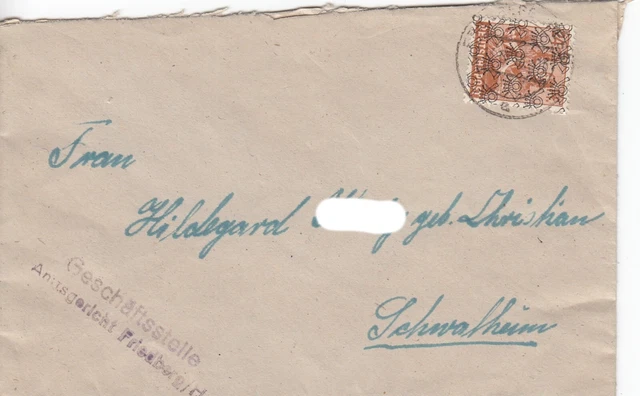 Frau
Hildegard geb. Christian
Schwalheim
Geschäftsstelle
Amtsgericht Friedberg/